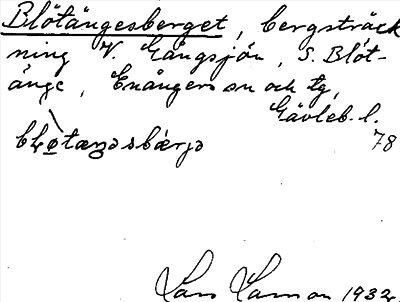 Blötängesberget, bergsträck
ning V. Gångsjön, S. Blöt-
änge, Enångers sn och tg,
Gävleb. l.
78
Lars Larsson 1932.